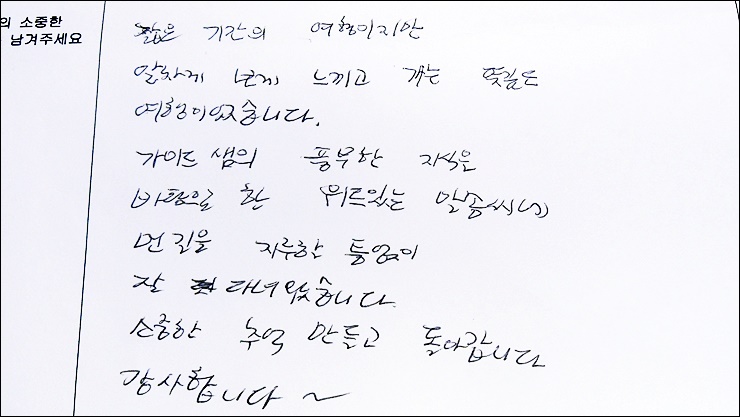 의 소중한
남겨주세요
짧은 기간의 여행이지만
알차게 보고 느끼고 가는 뜻깊은
여행이었습니다.
가이드 샘의 풍부한 지식을
바탕으로 한 위트있는 말솜씨에
먼 길을 지루한 틈없이
잘 다녀왔습니다.
소중한 추억 만들고 돌아갑니다
감사합니다 ~